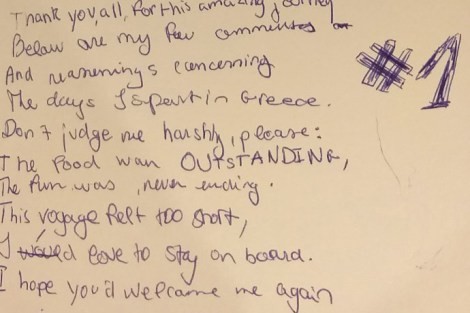 Thank you, all, for this amazing journey
Below are my few comments
#1
And reasonings concerning
The days I spent in Greece.
Don't judge me harshly, please:
The food was OUTSTANDING,
The fun was never ending.
This voyage felt too short,
I would love to stay on board.
I hope you'd welcome me again